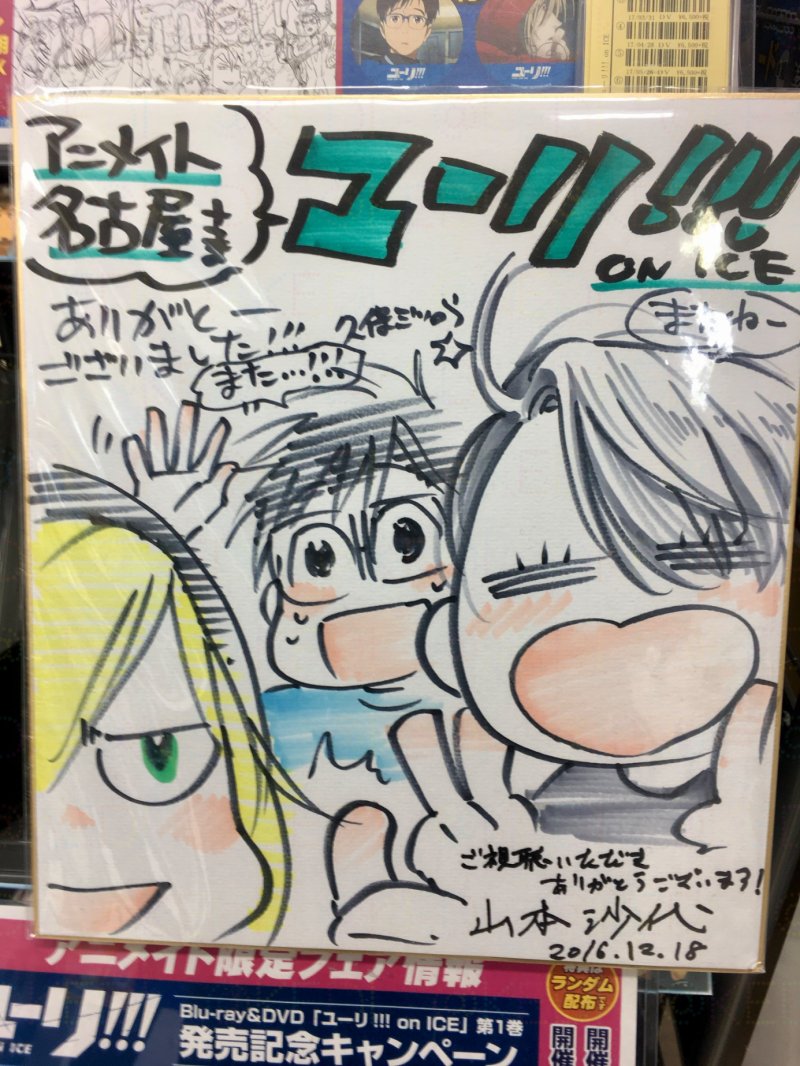 ユーリ!!!
アニメイト
名古屋さま
ユーリ!!!
ON ICE
ありがとー
ございました!!!
久保ミツロウ
また…!!!
まったねー
ご視聴いただき
ありがとうございます!
山本沙代
2016.12.18
アニメイト限定フェア情報
ランダム
配布です
ユーリ!!!
ON ICE
Blu-ray&DVD「ユーリ!!! on ICE」第1巻
発売記念キャンペーン
開催
開催